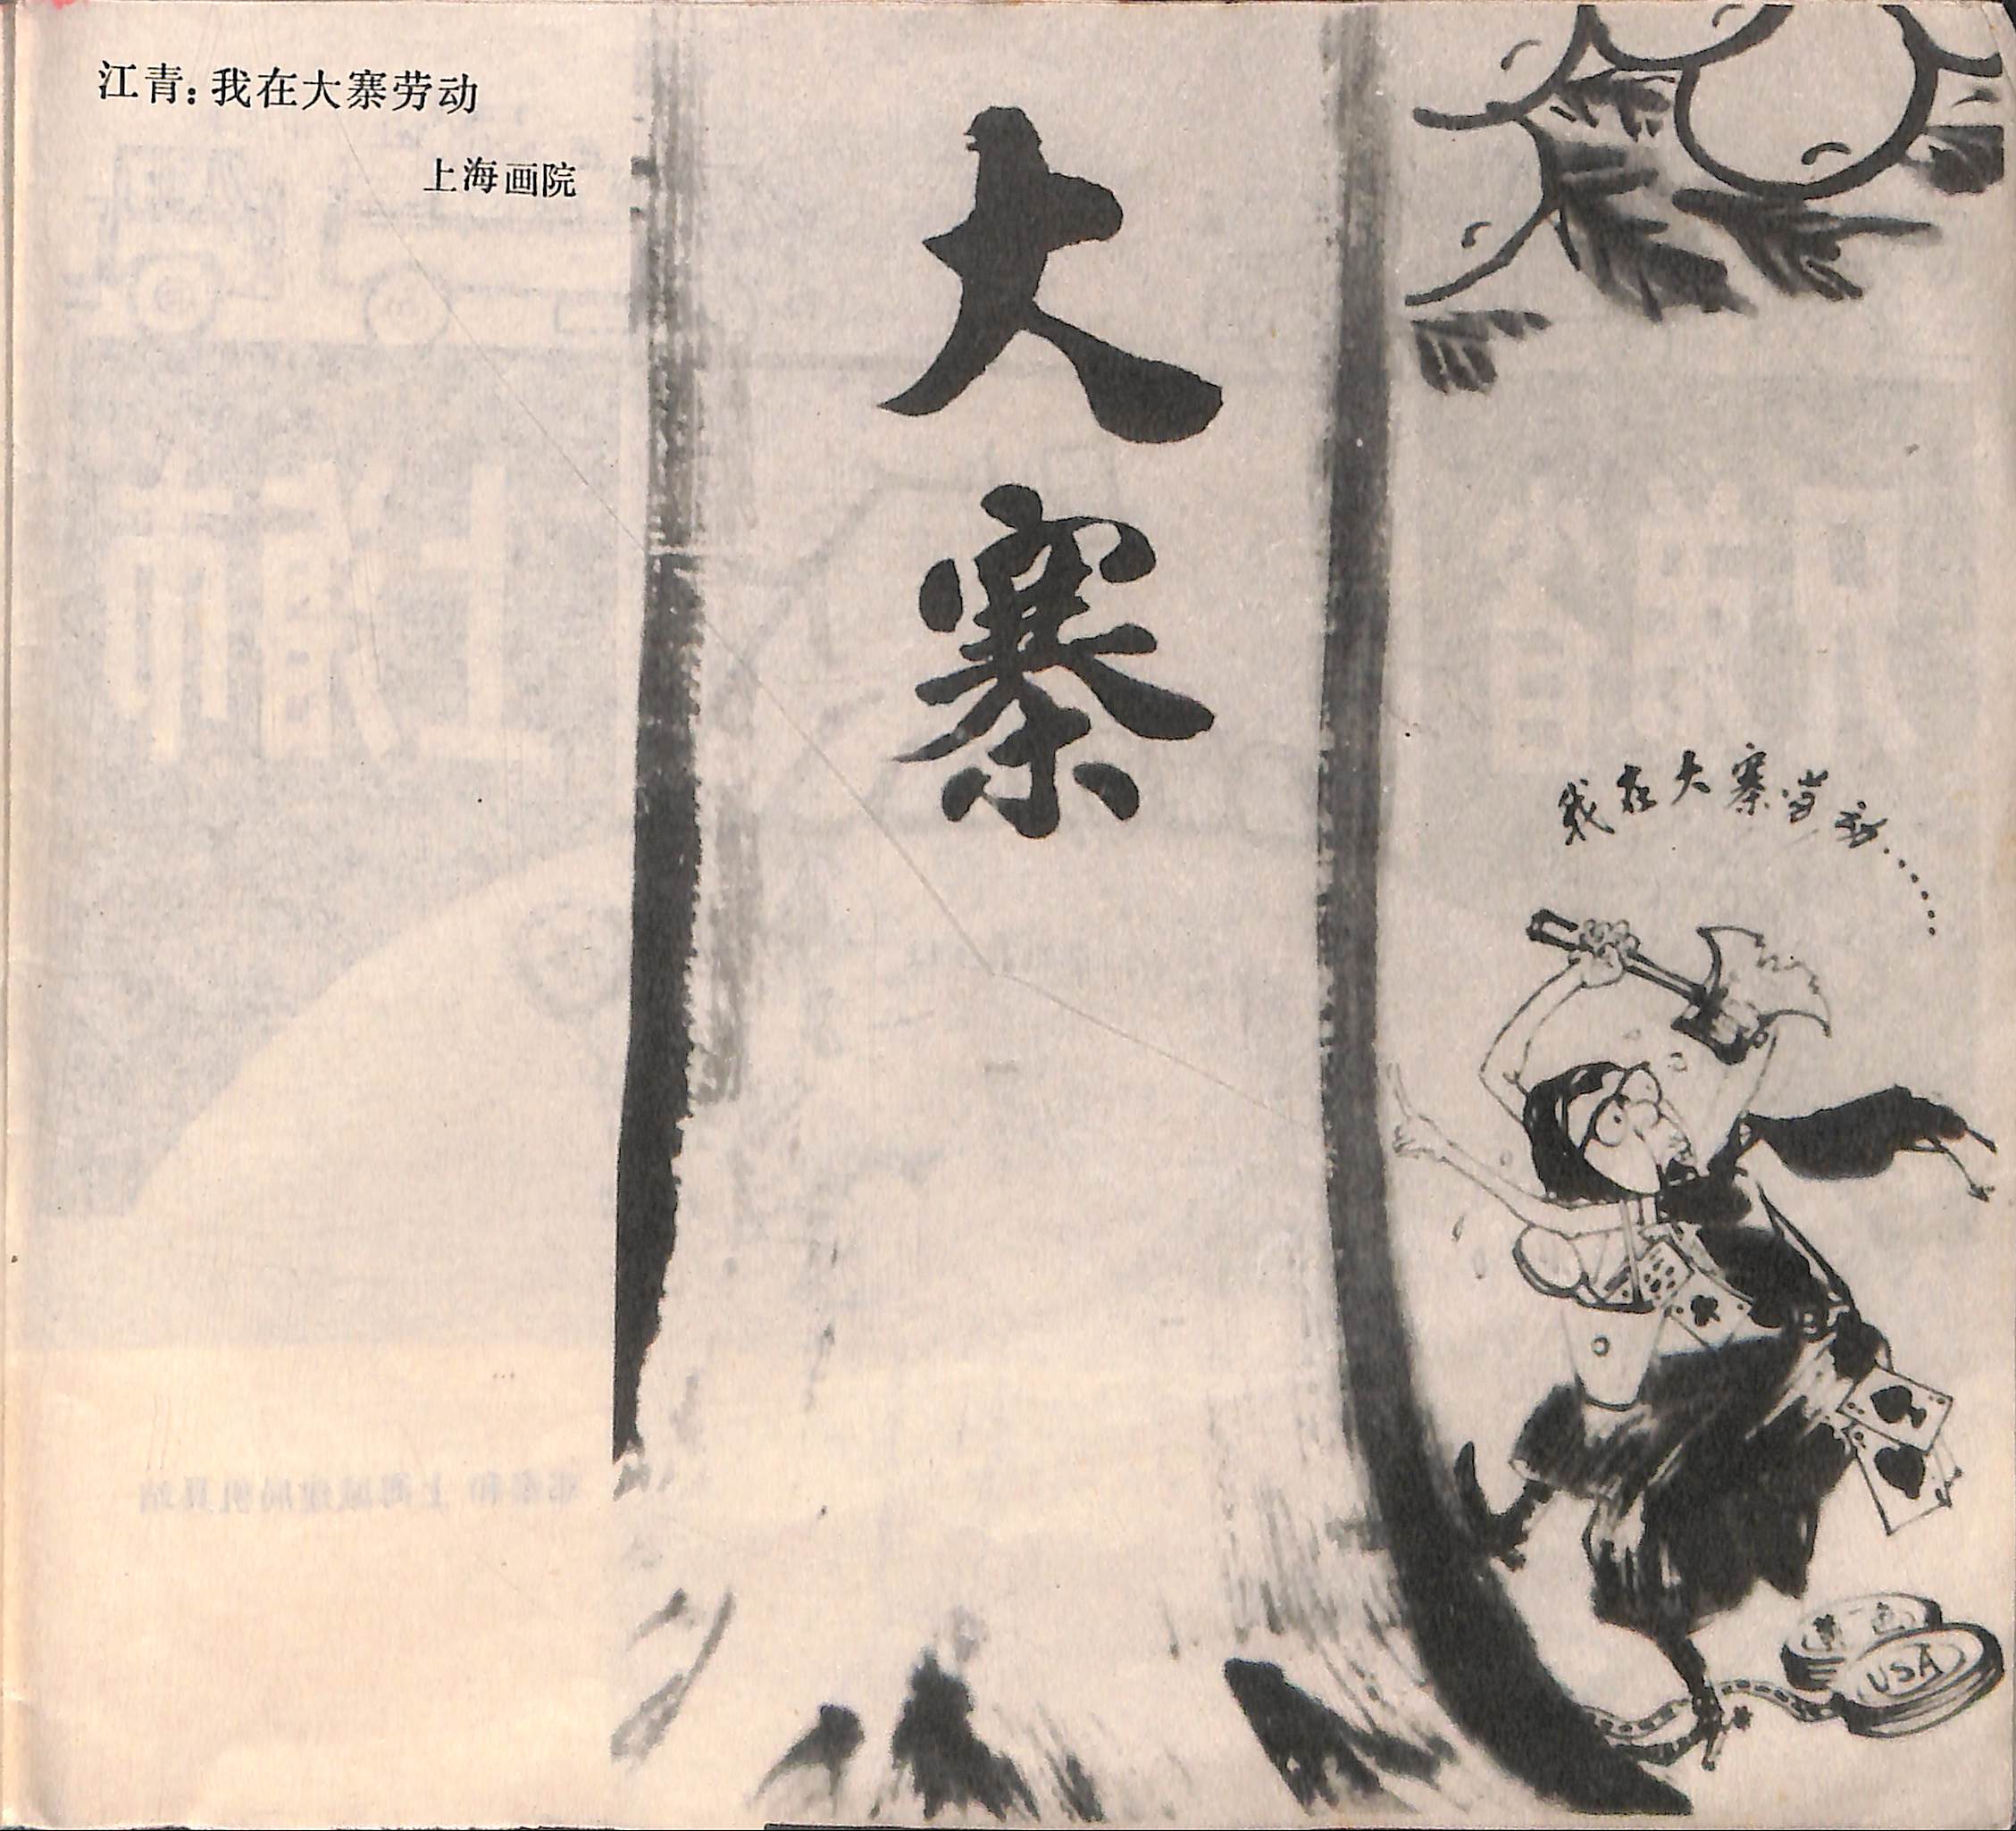 江青：我在大寨劳动
上海画院
大
寨
我在大寨劳动……
黄色
USA